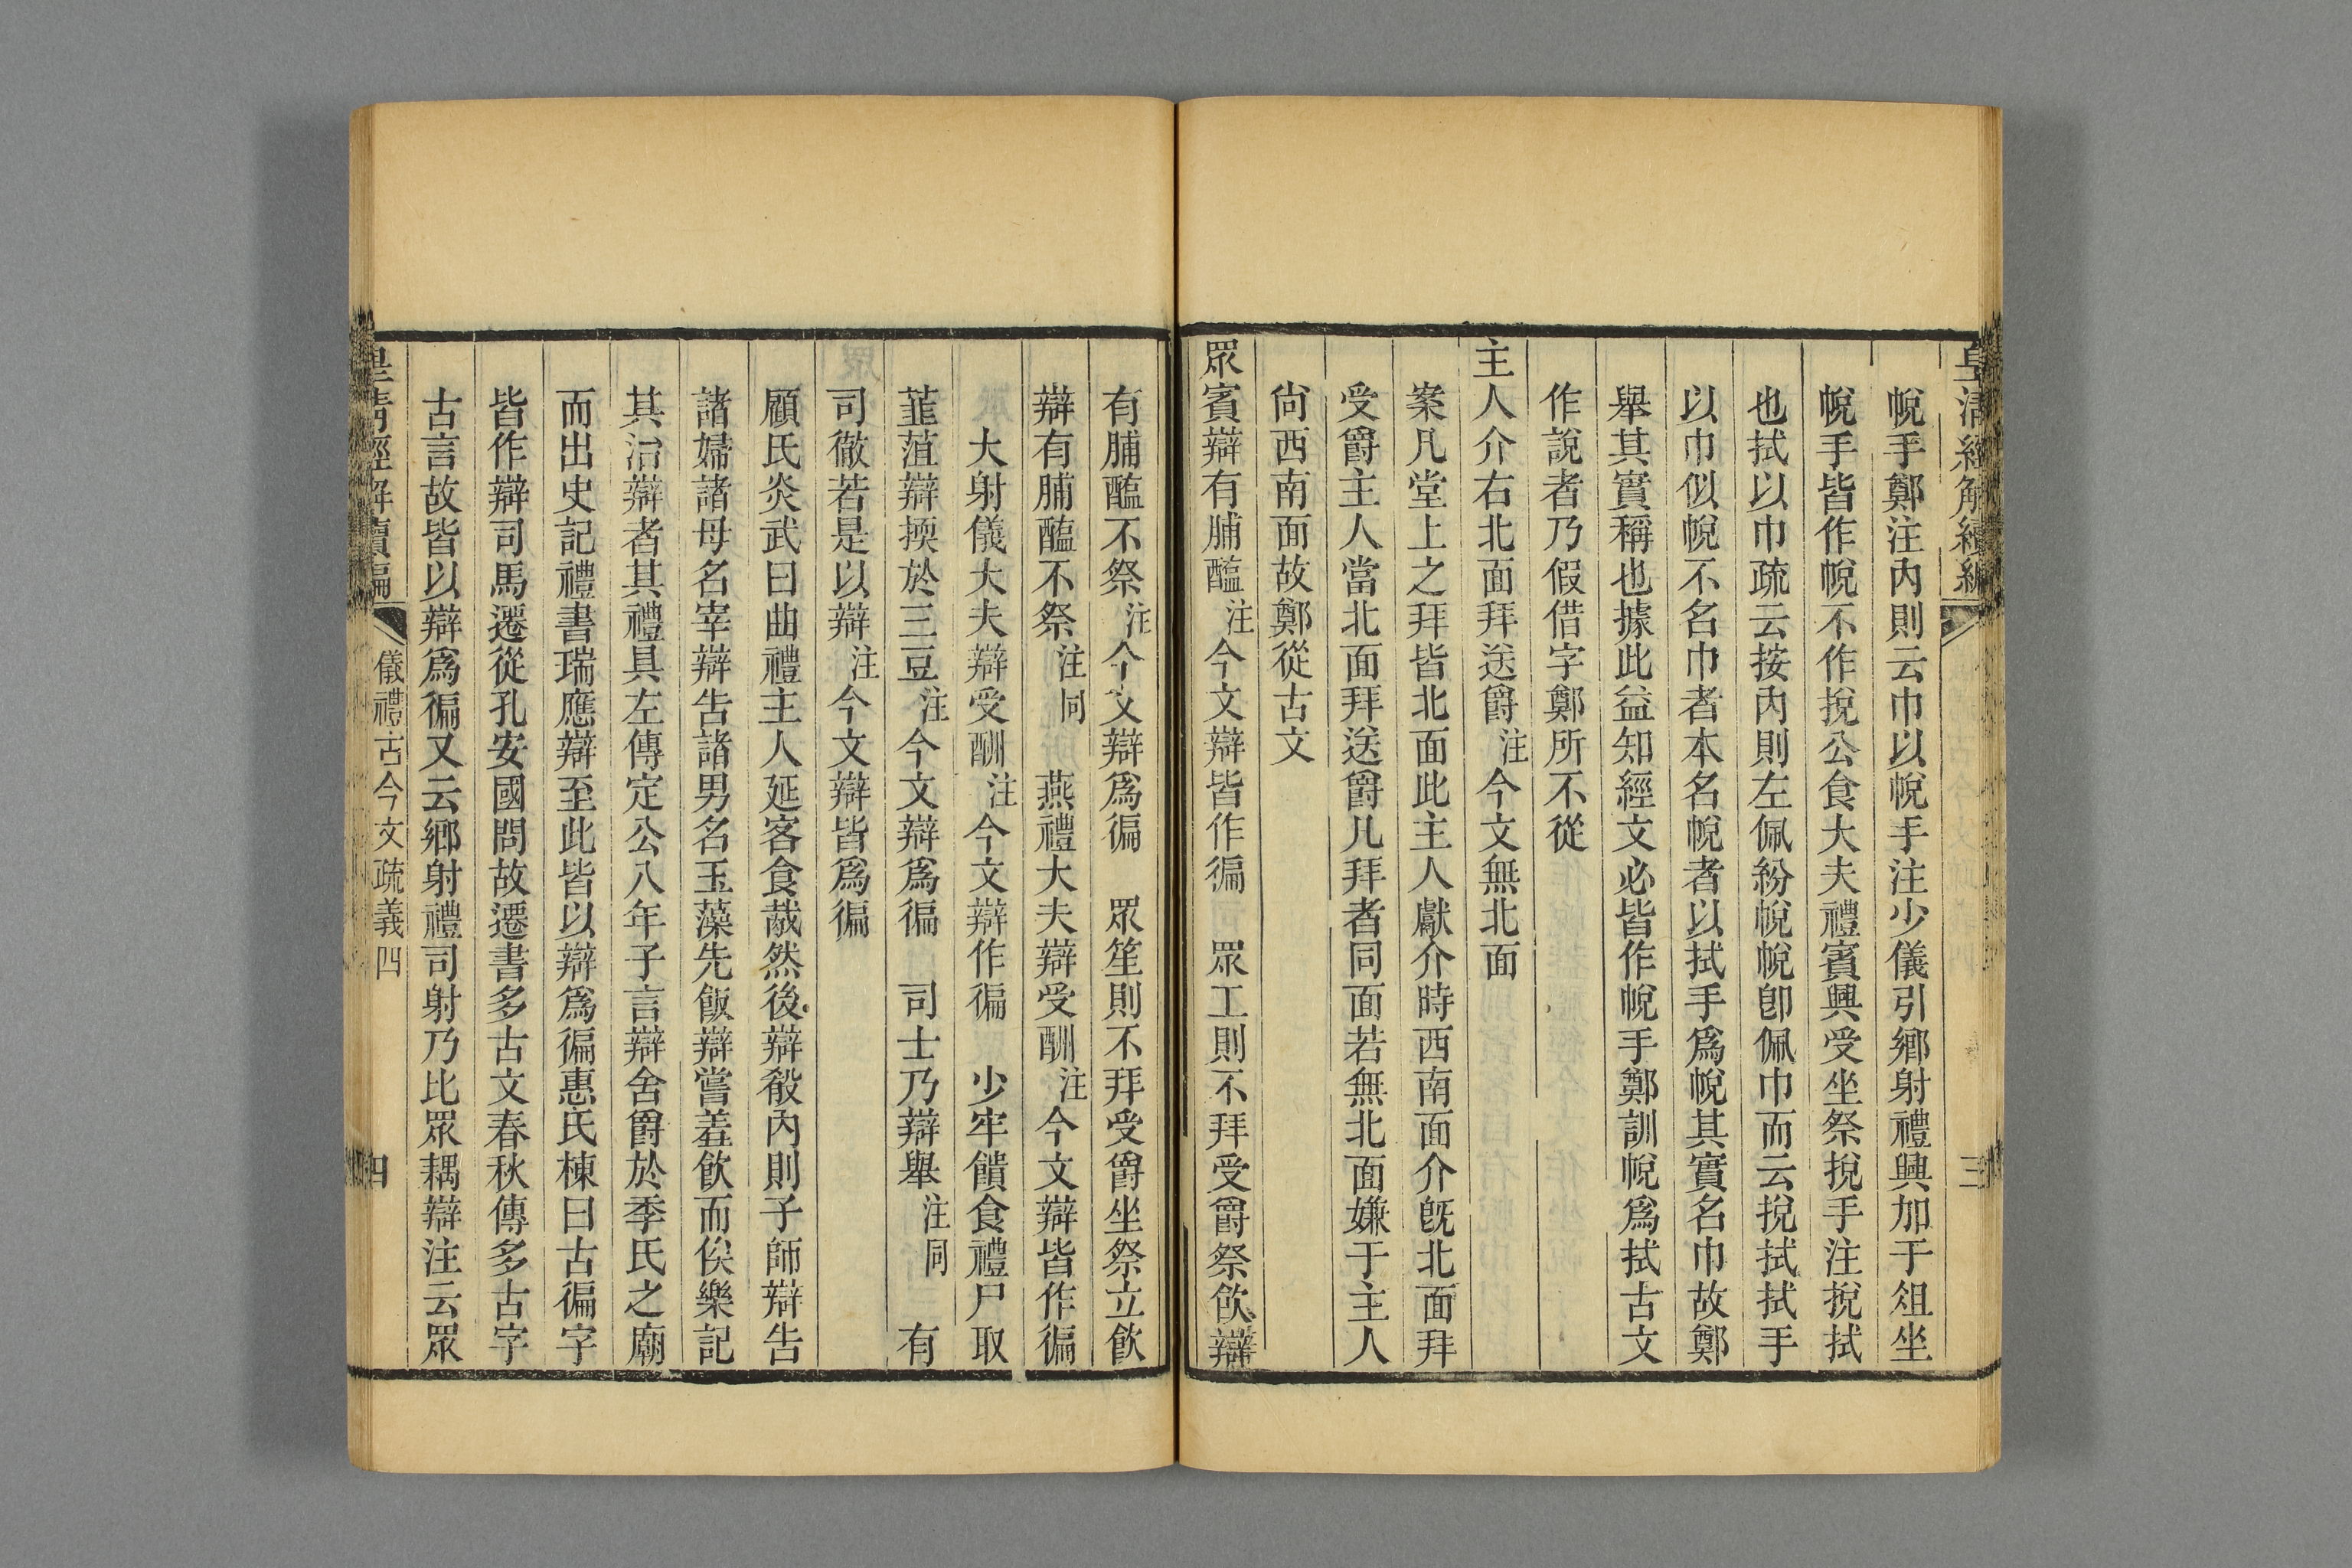 皇清經解續編
三
帨手鄭注內則云巾以帨手注少儀引鄉射禮興加于俎坐
帨手皆作帨不作挩公食大夫禮賓興受坐祭挩手注挩拭
也拭以巾疏云按內則左佩紛帨帨卽佩巾而云挩拭拭手
以巾似帨不名巾者本名帨者以拭手爲帨其實名巾故鄭
舉其實稱也據此益知經文必皆作帨手鄭訓帨爲拭古文
作說者乃假借字鄭所不從
主人介右北面拜送爵注今文無北面
案凡堂上之拜皆北面此主人獻介時西南面介旣北面拜
受爵主人當北面拜送爵凡拜者同面若無北面嫌于主人
尙西南面故鄭從古文
眾賓辯有脯醢注今文辯皆作徧 眾工則不拜受爵祭飮辯
有脯醢不祭注今文辯爲徧 眾笙則不拜受爵坐祭立飮
辯有脯醢不祭注同 燕禮大夫辯受酬注今文辯皆作徧
大射儀大夫辯受酬注今文辯作徧 少牢饋食禮尸取
韮菹辯擩於三豆注今文辯爲徧 司士乃辯舉注同 有
司徹若是以辯注今文辯皆爲徧
顧氏炎武曰曲禮主人延客食胾然後辯殽內則子師辯告
諸婦諸母名宰辯告諸男名玉藻先飯辯嘗羞飮而俟樂記
其治辯者其禮具左傳定公八年子言辯舍爵於季氏之廟
而出史記禮書瑞應辯至此皆以辯爲徧惠氏棟曰古徧字
皆作辯司馬遷從孔安國問故遷書多古文春秋傳多古字
古言故皆以辯爲徧又云鄉射禮司射乃比眾耦辯注云眾
皇清經解續編
儀禮古今文疏義四
四